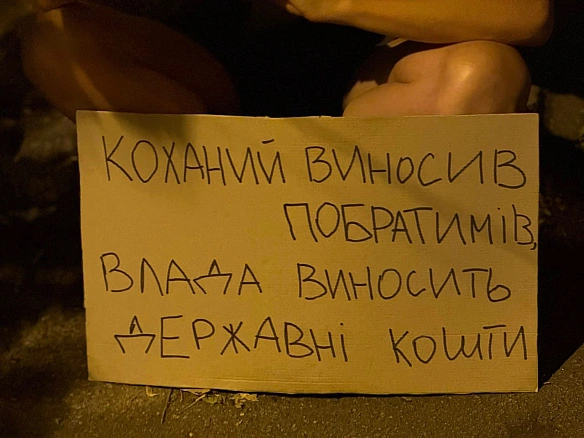 КОХАНИЙ ВИНОСИВ
ПОБРАТИМІВ,
ВЛАДА ВИНОСИТЬ
ДЕРЖАВНІ КОШТИ